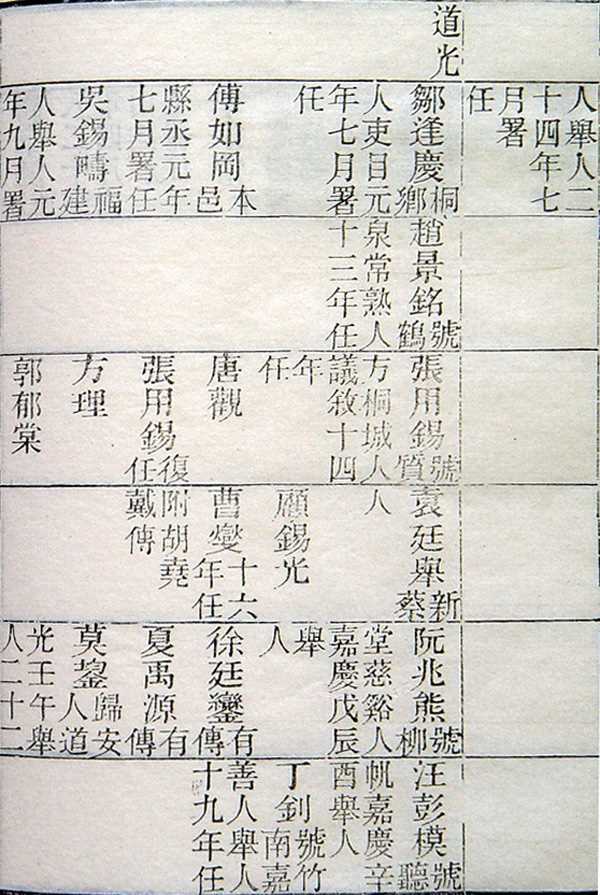 道光
人舉人二
十四年七
月署
任
鄒逢慶桐鄉
人吏目元
年七月署
任
傅如岡本邑
縣丞元年
七月署任
吳錫疇福建
人舉人元
年九月署
趙景銘號鶴
泉常熟人
十三年任
張用錫號質
方桐城人
議敘十四
年
任
唐觀
張用錫復任
方理
郭郁棠
袁廷舉新蔡
人
顧錫光
曹燮十六年任
附胡堯
戴傳
阮兆熊號柳
堂慈谿人
嘉慶戊辰
舉
人
徐廷鑾有傳
夏禹源有傳
莫鋆歸安人道
光壬午舉
人二十二
汪彭模號聽
帆嘉慶辛
酉舉人
丁釗號竹南嘉
善人舉人
十九年任